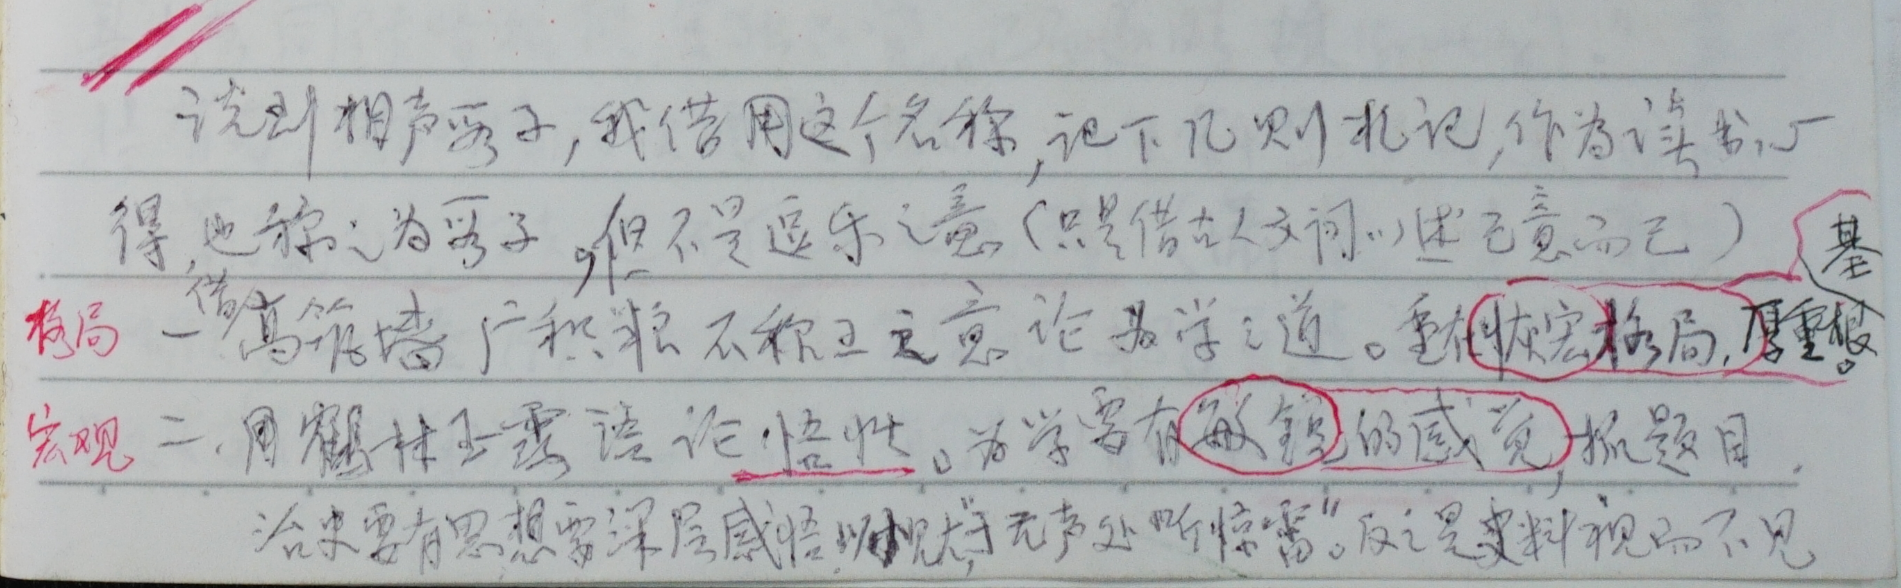 说到相声段子,我借用这个名称,记下几则札记,作为读书心
得,也称之为段子。但不是逗乐之意(只是借古人文词以述己意而已)
格局 一借高筑墙广积粮不称王之意论为学之道。重在恢宏格局,厚重根基。
宏观 二、用鹤林玉露语论悟性。为学要有敏锐的感觉,抓题目.
治史要有思想要深层感悟 “于无声处听惊雷”。反之是史料视而不见